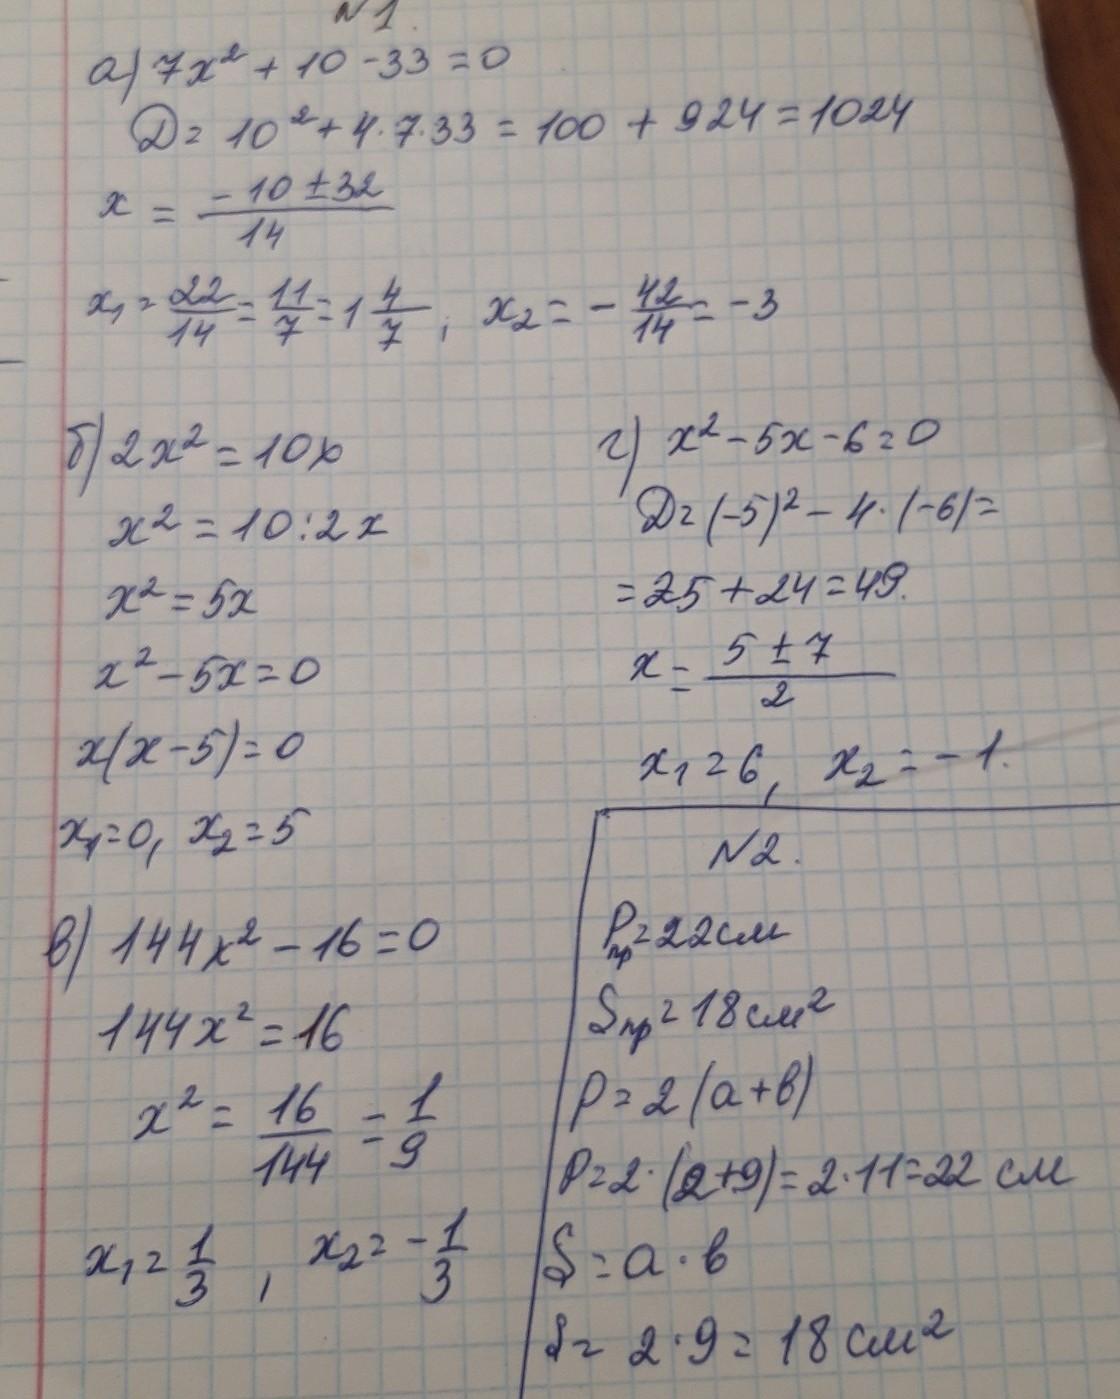 N1.
а) 7x² + 10 - 33 = 0
D = 10² + 4·7·33 = 100 + 924 = 1024
x = (-10 ± 32)/14
x₁ = 22/14 = 11/7 = 1 4/7 ; x₂ = - 42/14 = -3
б) 2x² = 10x
x² = 10:2x
x² = 5x
x² - 5x = 0
x(x - 5) = 0
x₁ = 0, x₂ = 5
в) 144x² - 16 = 0
144x² = 16
x² = 16/144 = 1/9
x₁ = 1/3 , x₂ = - 1/3
г) x² - 5x - 6 = 0
D = (-5)² - 4·(-6) =
= 25 + 24 = 49.
x = (5 ± 7)/2
x₁ = 6, x₂ = -1.
N2.
Pпр = 22 см
Sпр = 18 см²
P = 2(a + в)
P = 2·(2+9) = 2·11 = 22 см
S = a · в
S = 2·9 = 18 см²